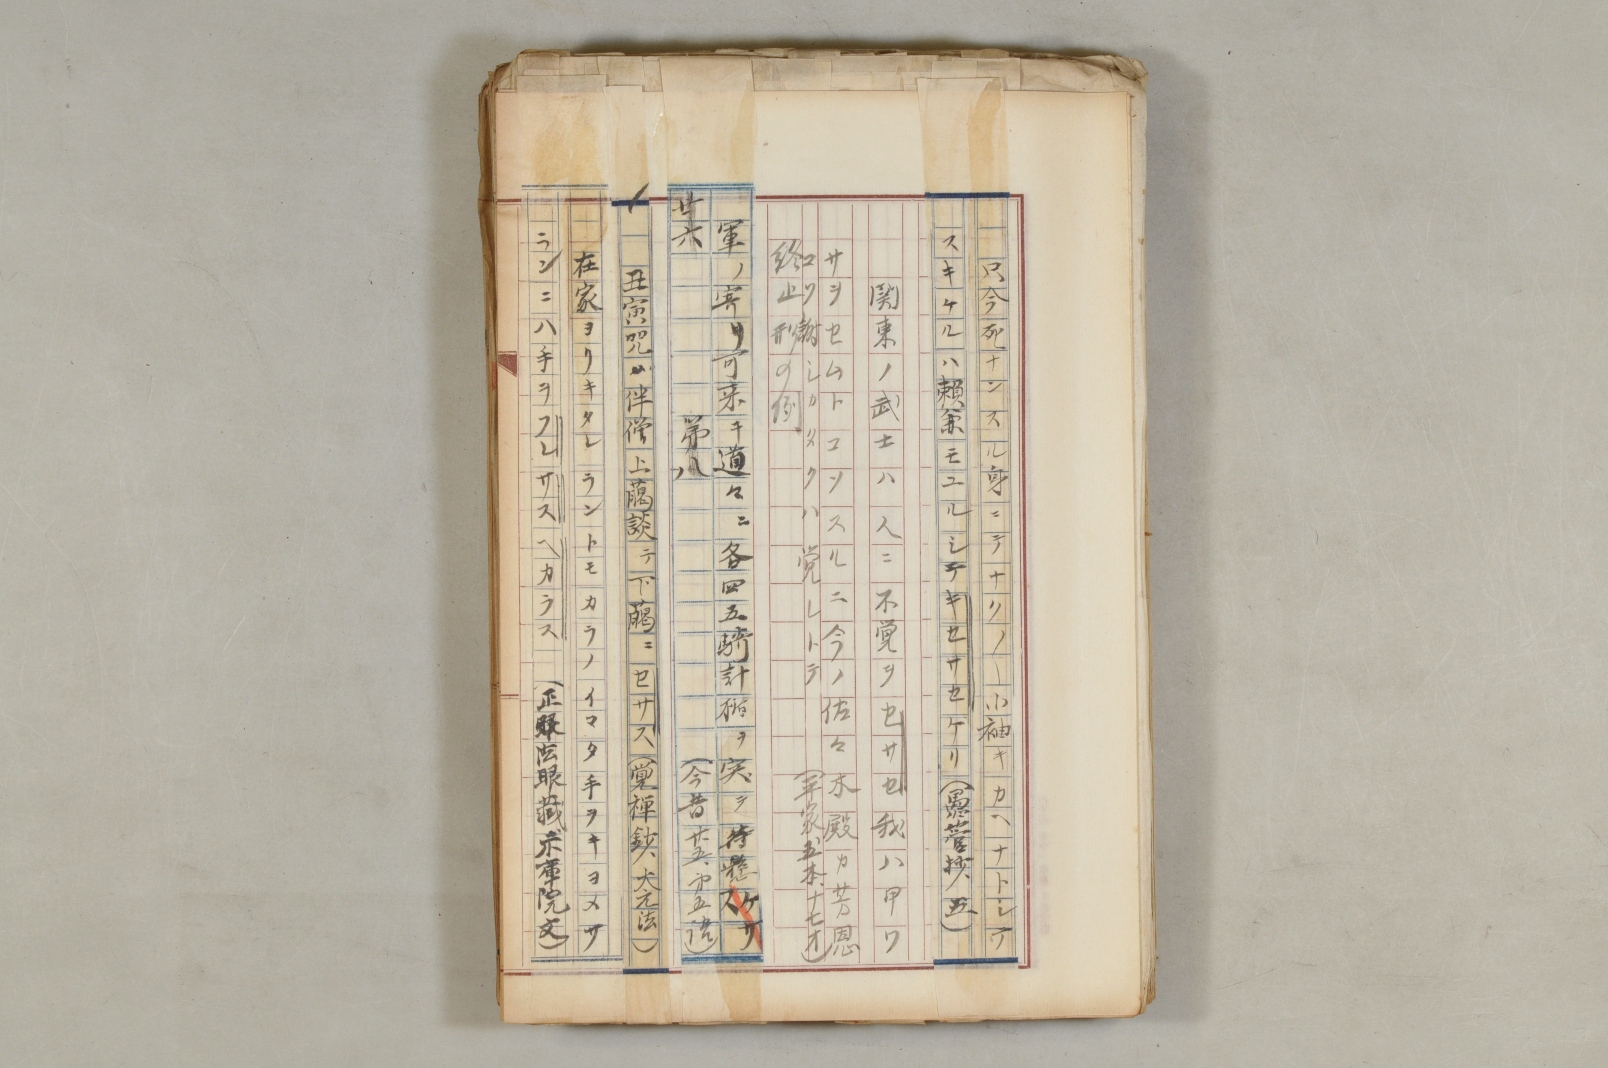 只今死ナンスル身ニテナク〳〵小袖キカヘナトシテ
スキケルハ頼兼モユルシテキセサセケリ(愚管抄五)
関東ノ武士ハ人ニ不覚ヲセサセ我ハ甲ワ
サヲセムトコソスルニ今ノ佐々木殿カ芳恩
コソ謝シカタクハ覚レトテ(平家五本、十七オ)
終止形の例、
軍ノ寄リ可来キ道々ニ各四五騎計楯ヲ突テ待懸スケサ
廿六 第八 (今昔廿五、第五話)
丑寅咒 伴僧上﨟談テ下﨟ニセサス(覚禅鈔、大元法)
在家ヨリキタレラントモカラノイマタ手ヲキヨメサ
ランニハ手ヲフレサスヘカラス (正眼法眼蔵示庫院文)